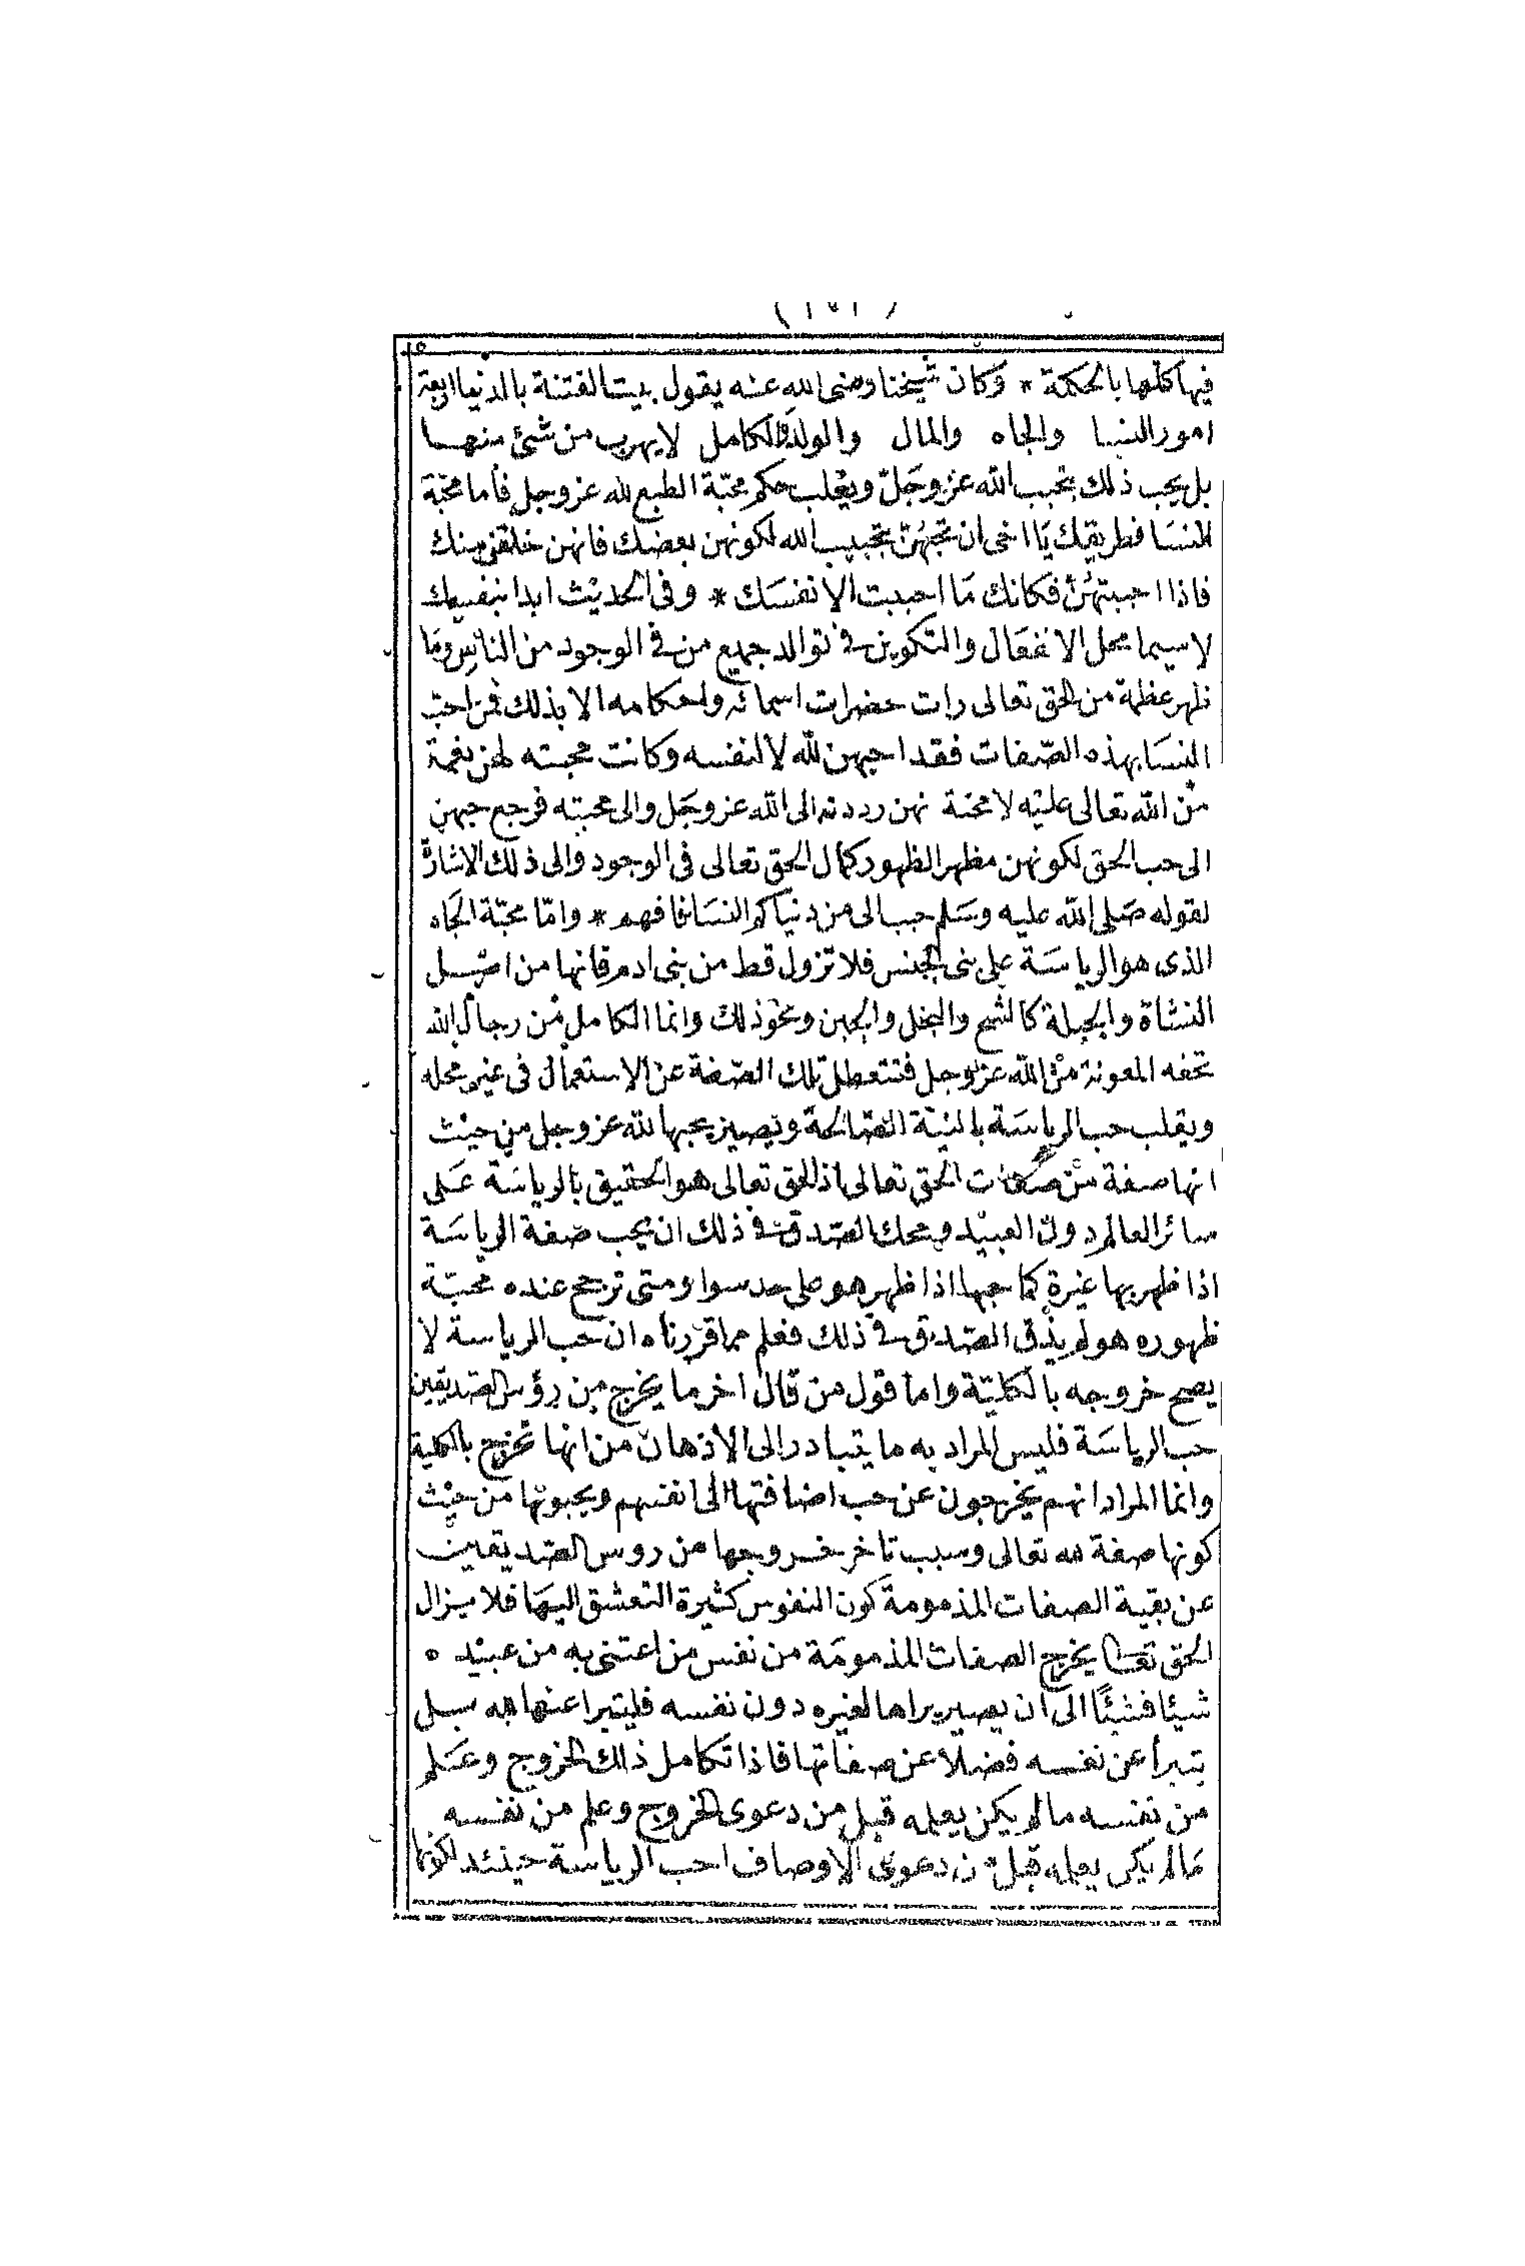 فيها كلها بالحكمة * وكان شيخنا رضى الله عنه يقول بيت الفتنة بالدنيا اربعة
امور النسا والجاه والمال والولد فالكامل لا يهرب من شئ منها
بل يحب ذلك بتحبب الله عز وجل ويقلب حكم محبّة الطبع لله عز وجل فأما محبّة
النسا فطريقك يا اخى ان تحبهن بتحبيب الله لكونهن بعضك فانهن خلقن منك
فاذا احببتهن فكانك ما احببت الا نفسك * وفى الحديث ابدا بنفسك
لاسيما محل الانفعال والتكوين فى توالد جميع من فى الوجود من الناس وما
ظهر عظمة من الحق تعالى رات حضرات اسمائه واحكامه الا بذلك فمن احبّ
النسا بهذه الصّفات فقد احبهن لله لا لنفسه وكانت محبته لهن نعمة
من الله تعالى عليه لا محنة نهن رددنه الى الله عز وجل والى محبته فرجع حبهن
الى حب الحق لكونهن مظهر الظهور كمال الحق تعالى فى الوجود والى ذلك الاشارة
لقوله صلى الله عليه وسلم حبب الى من دنياكم النسا فافهم * وامّا محبّة الجاه
الذى هو الرياسة على بنى الجنس فلا تزول قط من بنى ادم فانها من اصل
النشاة والجبلة كالشح والبخل والجبن ونحو ذلك وانما الكامل من رجال الله
تحفه المعونة من الله عز وجل فتتعطل تلك الصّفة عن الاستعمال فى غير محله
ويقلب حب الرياسة بالنيّة الصّالحة ويصير يحبها لله عز وجل من حيث
انها صفة من صفات الحق تعالى اذ الحق تعالى هو الحقيق بالرياسة على
سائر العالم دون العبيد ومحك الصّدق فى ذلك ان يحب صفة الرياسة
اذا ظهر بها غيره كما يحبها اذا ظهر هو على حد سوا ومتى ترجح عنده محبّة
ظهوره هو لم يذق الصدق فى ذلك فعلم مما قررناه ان حب الرياسة لا
يصح خروجه بالكليّة واما قول من قال اخر ما يخرج من رؤس الصديقين
حب الرياسة فليس المراد به ما يتبادر الى الاذهان من انها تخرج بالكلية
وانما المراد انهم يخرجون عن حب اضافتها الى انفسهم ويحبونها من حيث
كونها صفة لله تعالى وسبب تاخر خروجها من روس الصديقين
عن بقية الصفات المذمومة كون النفوس كثيرة التعشق اليها فلا يزال
الحق تعالى يخرج الصفات المذمومة من نفس من اعتنى به من عبيده
شيئا فشيئًا الى ان يصير يراها لغيره دون نفسه فليتبرا عنها به بل
يتبرا عن نفسه فضلا عن صفاتها فاذا تكامل ذلك الخروج وعلم
من نفسه ما لم يكن يعلمه قبل من دعوى الخروج وعلم من نفسه
ما لم يكن يعلمه قبل من دعوى الاوصاف احب الرياسة حينئذ لكونها